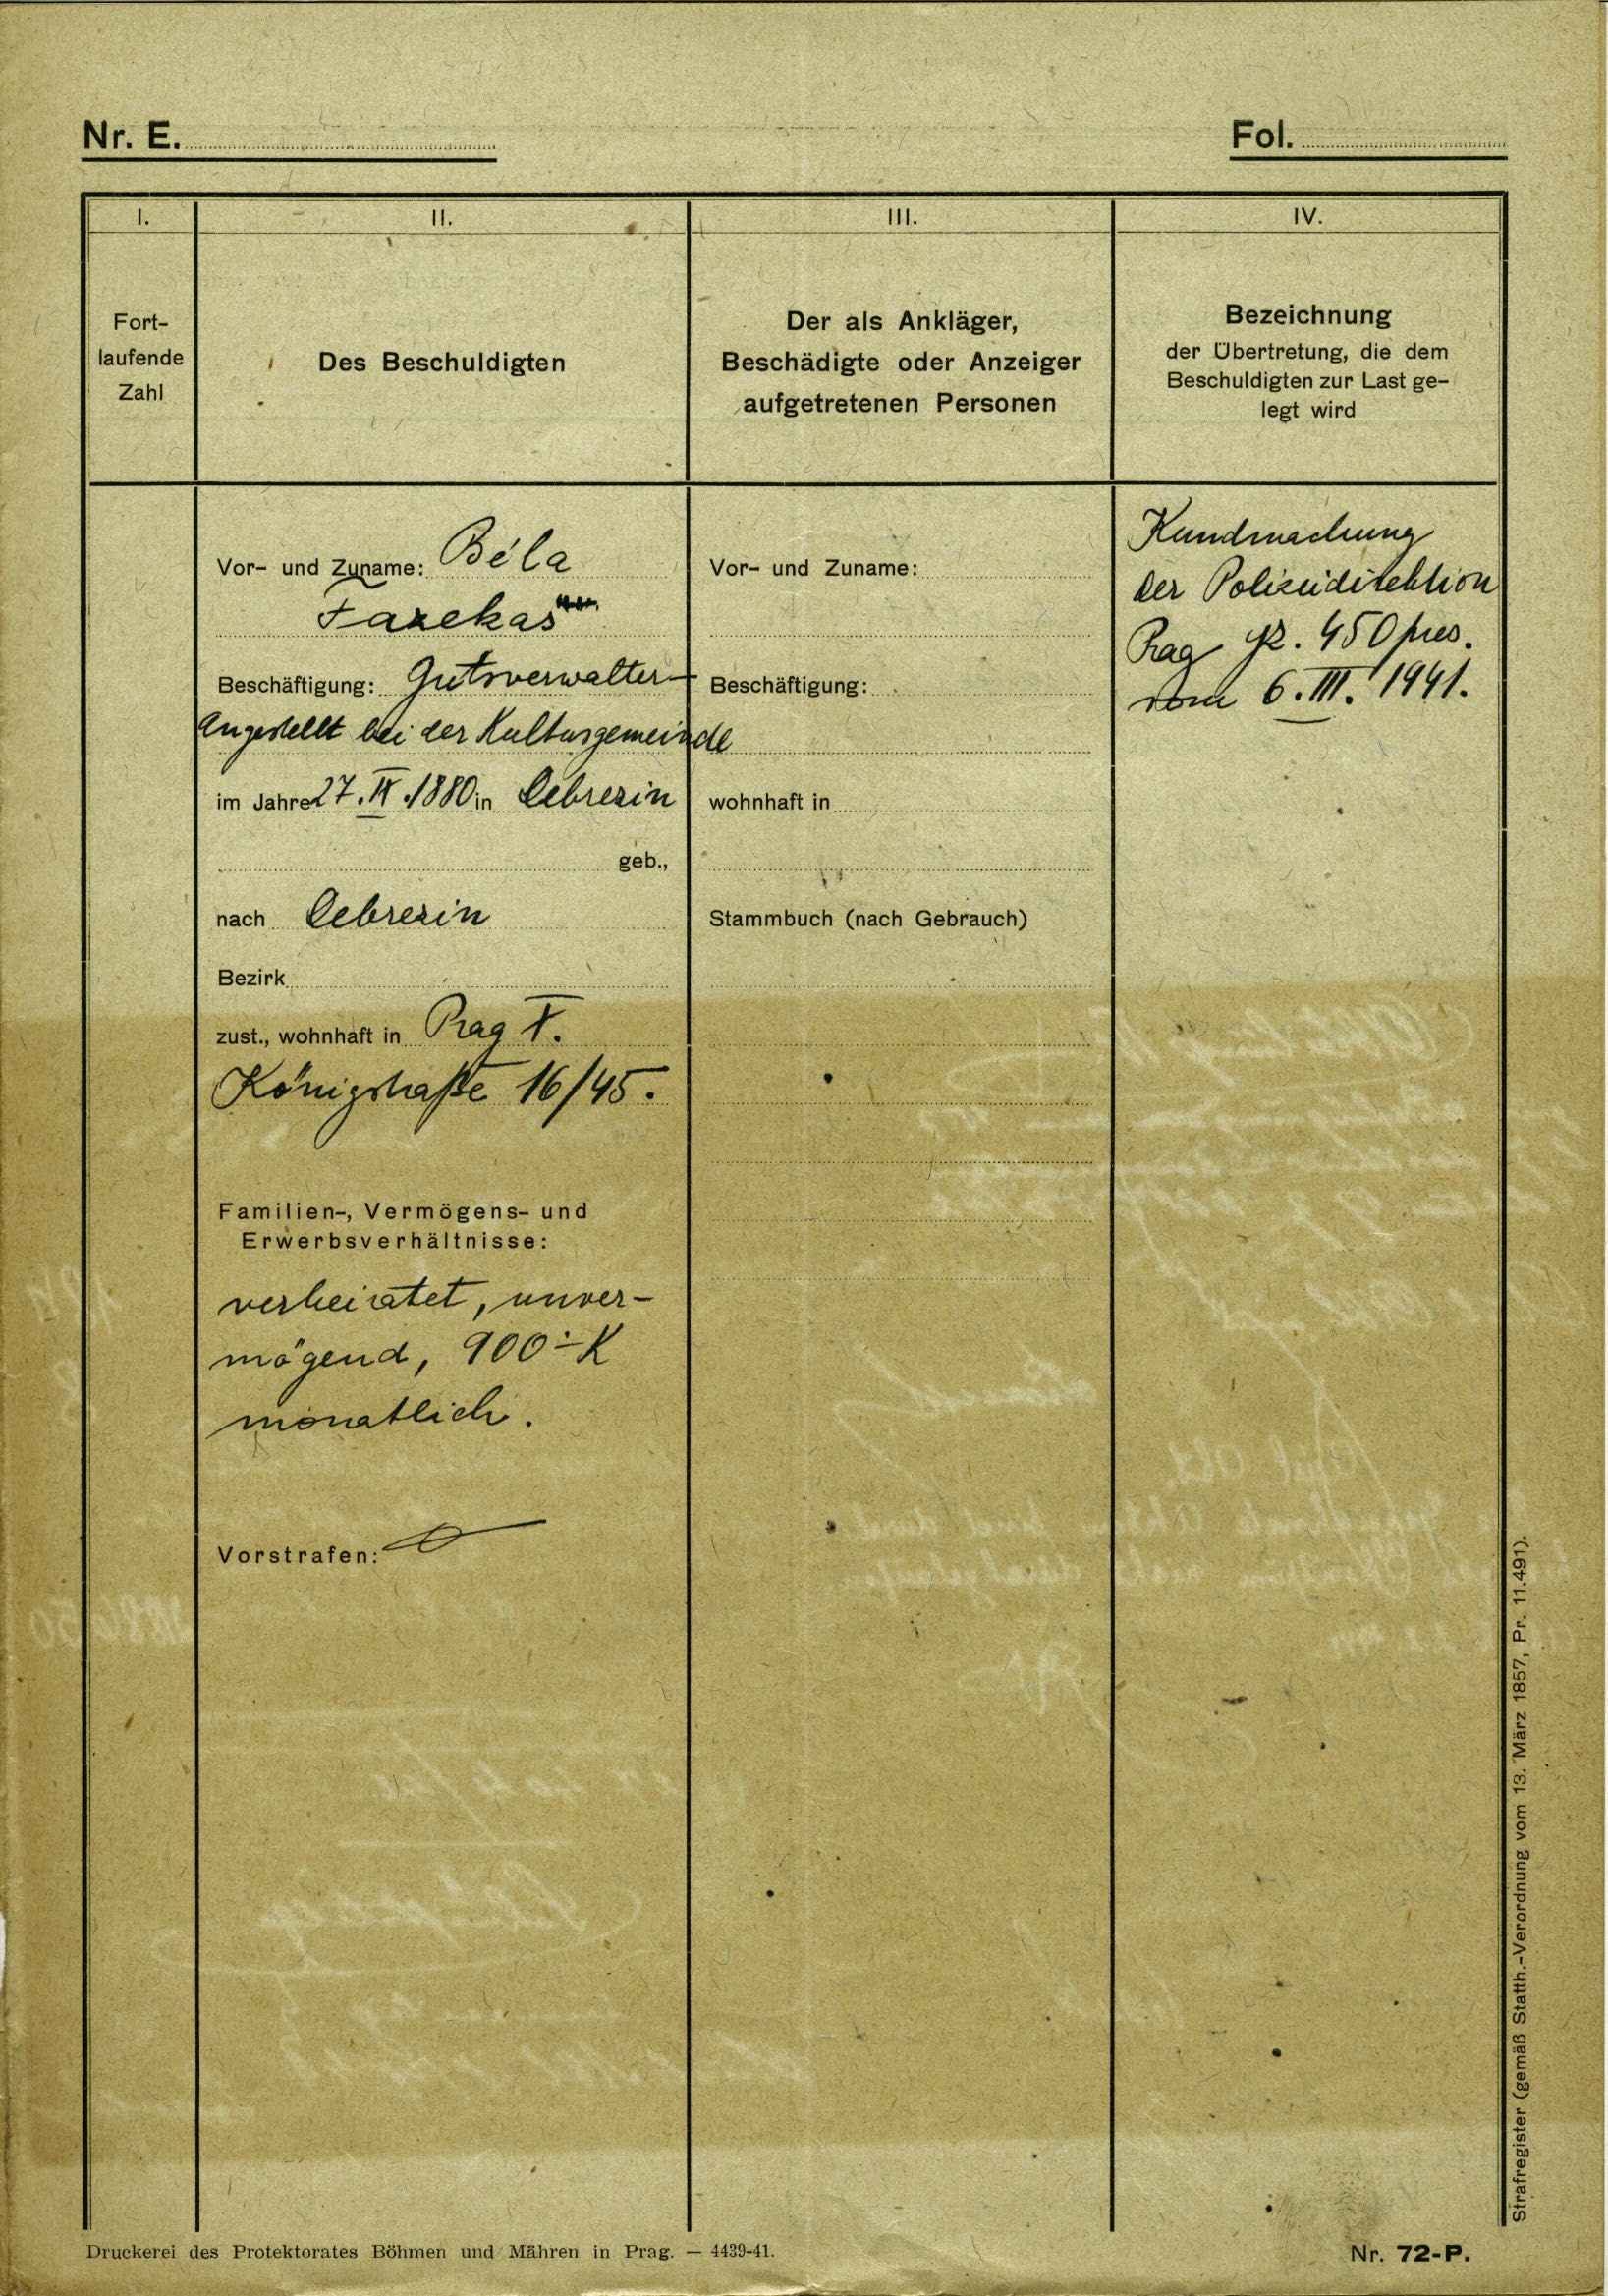 Nr. E.
Fol.
I.
II.
III.
IV.
Fort-
laufende
Zahl
Des Beschuldigten
Der als Ankläger,
Beschädigte oder Anzeiger
aufgetretenen Personen
Bezeichnung
der Übertretung, die dem
Beschuldigten zur Last ge-
legt wird
Vor- und Zuname: Béla
Fazekas
Beschäftigung: Gutsverwalter
Angestellt bei der Kultusgemeinde
im Jahre 27. IX. 1880 in Debrezin
geb.,
nach Debrezin
Bezirk
zust., wohnhaft in Prag
Königstraße 16/45.
Familien-, Vermögens- und
Erwerbsverhältnisse:
verheiratet, unver-
mögend, 900 K
monatlich.
Vorstrafen:
Vor- und Zuname:
Beschäftigung:
wohnhaft in
Stammbuch (nach Gebrauch)
Kundmachung
der Polizeidirektion
Prag 450 pres.
vom 6. III. 1941.
Strafregister (gemäß Statth.-Verordnung vom 13. März 1857, Pr. 11.491).
Druckerei des Protektorates Böhmen und Mähren in Prag. — 4439-41.
Nr. 72-P.